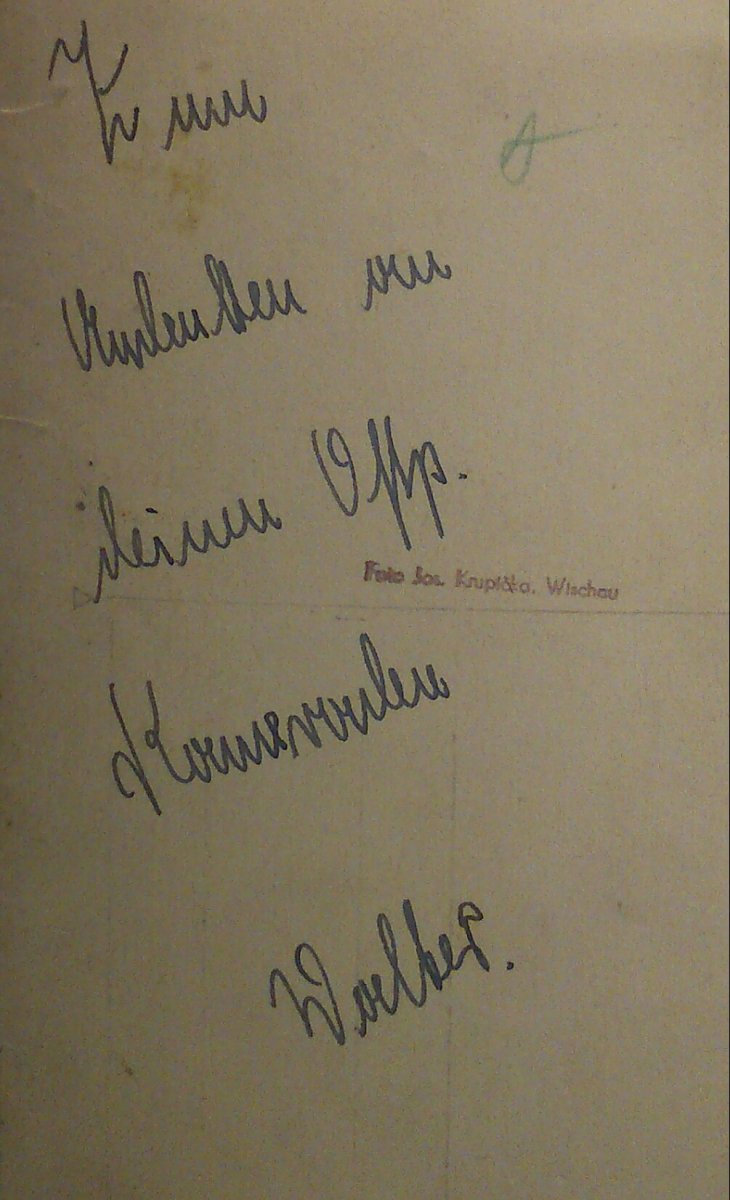 Zum
Andenken an
deinen Offp.
Foto Jos. Krupička, Wischau
Kameraden
Walter.